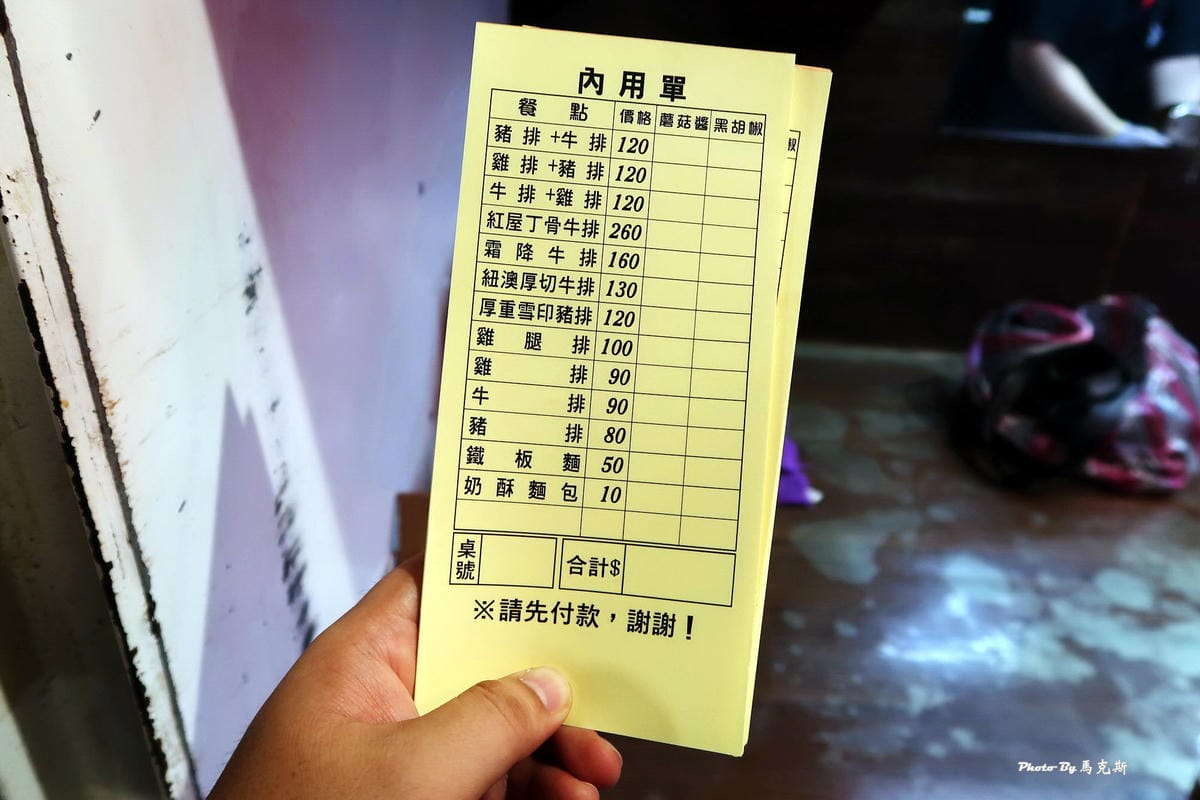 內用單
餐點 價格 蘑菇醬 黑胡椒
豬排+牛排 120
雞排+豬排 120
牛排+雞排 120
紅屋丁骨牛排 260
霜降牛排 160
紐澳厚切牛排 130
厚重雪印豬排 120
雞腿排 100
雞排 90
牛排 90
豬排 80
鐵板麵 50
奶酥麵包 10
桌號 合計$
※請先付款，謝謝！
椒
Photo By 馬克斯